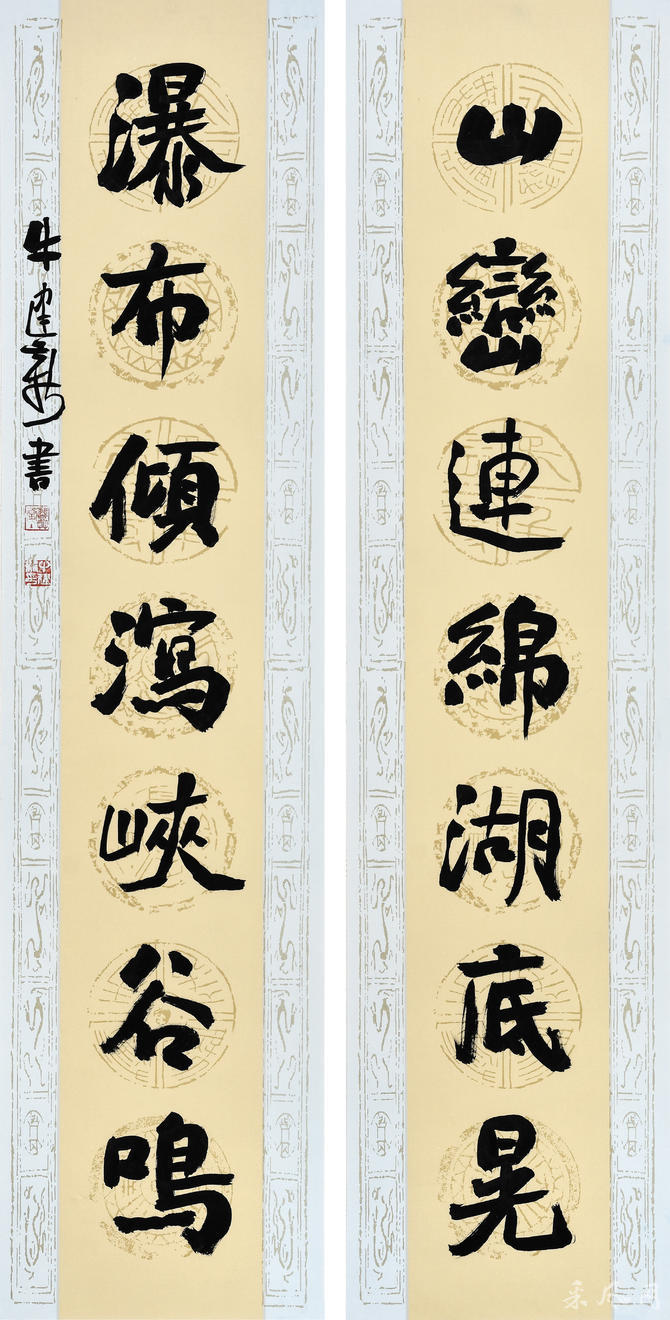 山巒連綿湖底晃
瀑布傾瀉峽谷鳴
朱建新書
采風网